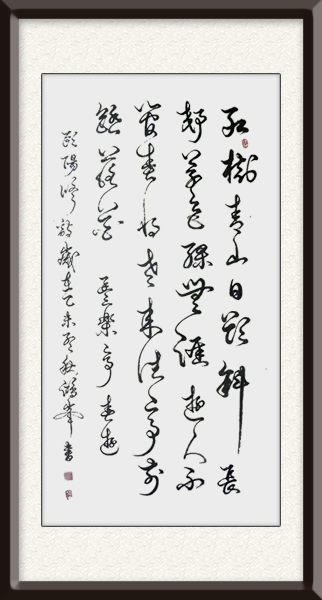 紅樹青山日欲斜長
郊草色綠無涯遊人不
管春將老來往亭前
踏落花 豐樂亭春遊
歐陽修詩歲在乙未鴻峰書